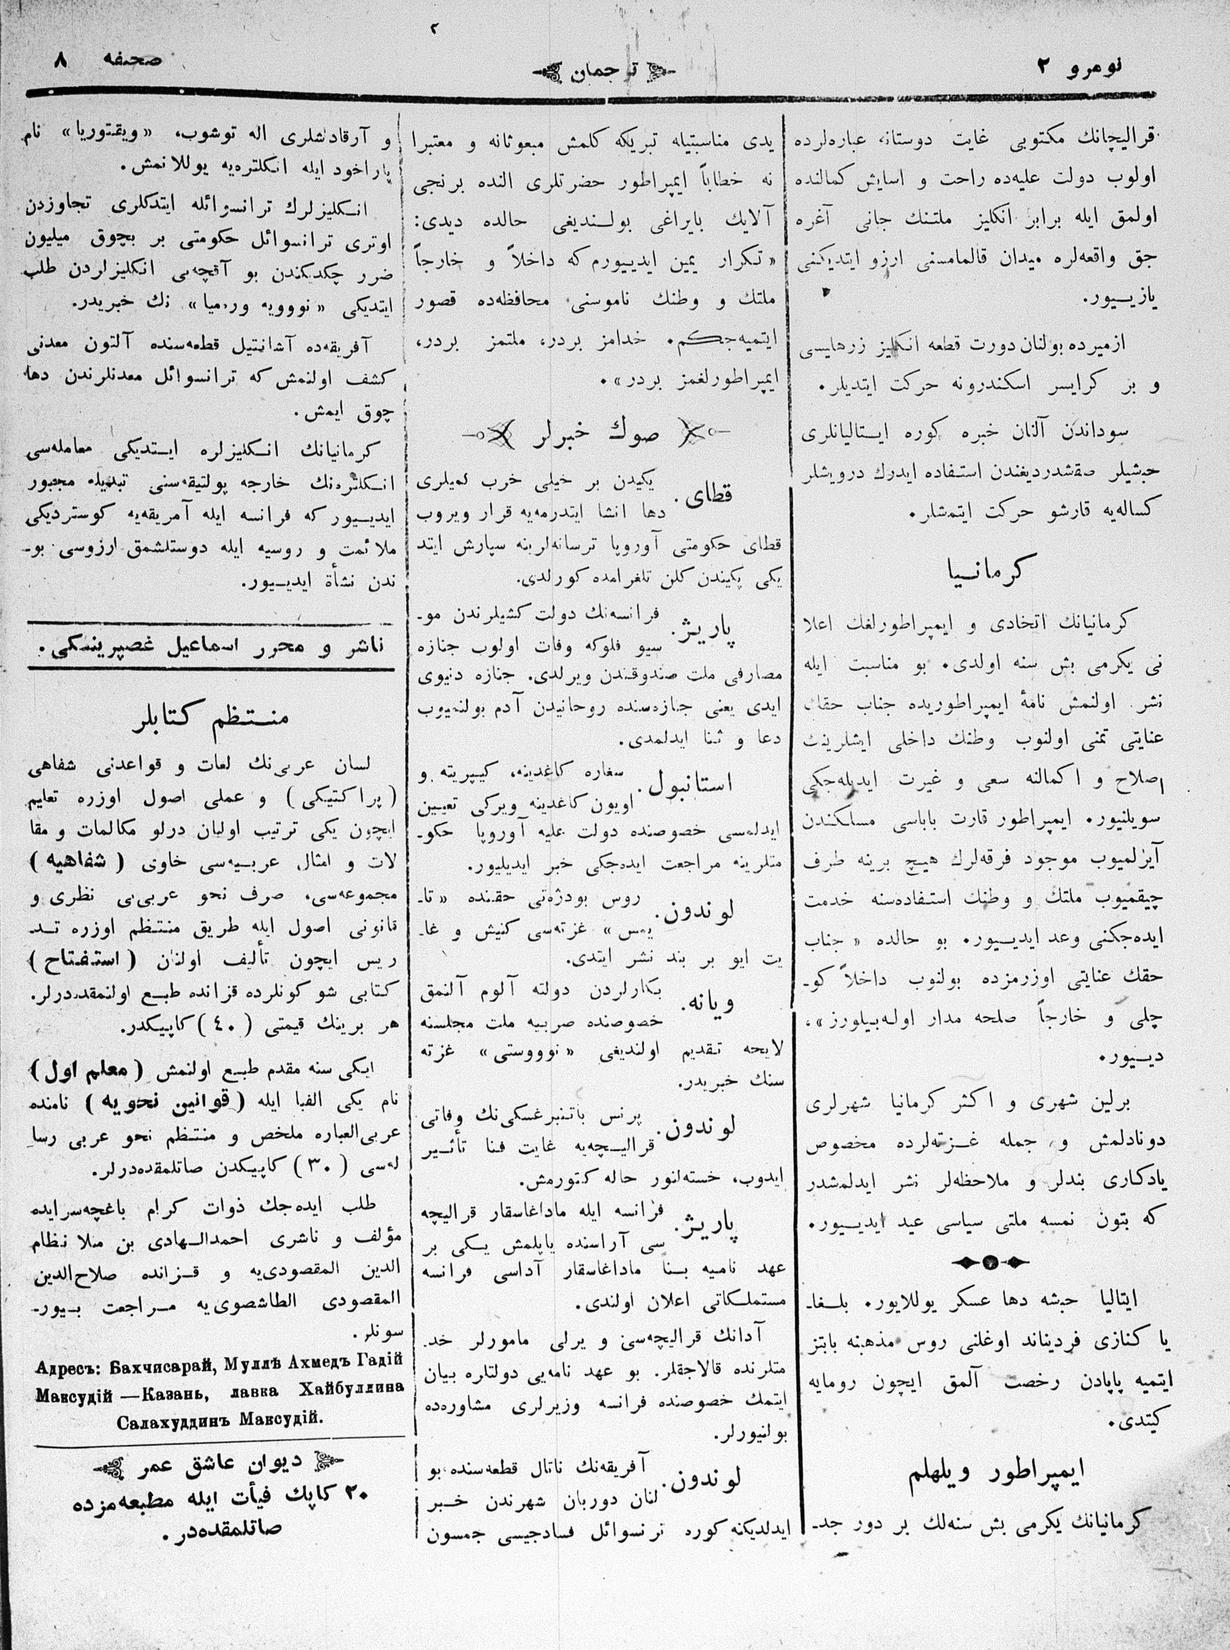 نومرو ٢
ترجمان
صحيفه ٨
قراليچانك مكتوبى غايت دوستانه عباره‌لرده
اولوب دولت عليه‌ده راحت و اسايش كمالنده
اولمق ايله برابر انكليز ملتنك جانى آغره
جق واقعه‌لره ميدان قالمامسنى ارزو ايتديكنى
يازيـيور.
ازميرده بولنان دورت قطعه انكليز زرهليسى
و بر كرايسر اسكندرونه حركت ايتديلر.
سوداندن آلنان خبره كوره ايـتاليانلرى
حبشيلر صقشدرديغندن استـفاده ايدرك درويشلر
كساله‌يه قارشو حركت ايتمشلر.
كرمانـيا
كرمانيانك اتخادى و ايمپراطورلغك اعلا
نى يكرمى بش سنه اولدى. بو مناسبت ايله
نشر اولنمش نامۀ ايمپراطوريده جناب حقك
عنايتى تمنى اولنوب وطنك داخلى ايشلرينك
اصلاح و اكمالنه سعى و غيرت ايديله‌جكى
سويلنيور. ايمپراطور قارت باباسى مسلكندن
آيرلميوب موجود فرقه‌لرك هيچ برينه طرف
چيقميوب ملتك و وطنك استـفاده‌سنه خدمت
ايده‌جكنى وعد ايديـيور. بو حالده « جناب
حقك عنايتى اوزرمزده بولنوب داخلاً كو-
چلى و خارجاً صلحه مدار اوله‌بيلورز»،
ديـيور.
برلين شهرى و اكثر كرمانيا شهرلرى
دونادلمش و جمله غـزته‌لرده مخصوص
يادكارى بندلر و ملاحظه‌لر نشر ايدلمشدر
كه بتون نمسه ملتى سياسى عيد ايديـيور.
ايتاليا حبشه دها عسكر يوللايور. بلـغا-
يا كنازى فرديناند اوغلنى روس مذهبنه باتنز
ايتميه پاپادن رخصت آلمق ايچون رومايه
كيتدى.
ايمپراطور ويلهلم
كرمانيانك يكرمى بش سنه‌لك بر دور جد-
يدى مناسبتيله تبريكه كلمش مبعوثانه و معتبرا
نه خطاباً ايمپراطور حضرتلرى النده برنجى
آلايك بايراغى بولـنديغى حالده ديدى:
« تـكرار يمين ايديـيورم كه داخلاً و خارجاً
ملتك و وطنك ناموسنى محافظه‌ده قصور
ايتميه‌جكم. خدامز بردر، ملتمز بردر،
ايمپراطورلغمز بردر».
صوك خبرلر
قطاى. يكيدن بر خيلى خرب كميلرى
دها انشا ايتدرمه‌يه قرار ويروب
قطاى حكومتى آوروپا ترسانه‌لرينه سپارش ايتد
يكى پكيندن كلن تلغرامده كورلدى.
پاريژ. فرانسه‌نك دولت كشيلرندن مو-
سيو فلوكه وفات اولوب جنازه
مصارفى ملت صندوقندن ويرلدى. جنازه دنيوى
ايدى يعنى جنازه‌سنده روحانيدن آدم بولنميوب
دعا و ثنا ايدلمدى.
استانبول. سغاره كاغدينه، كيپريته و
اويون كاغدينه ويركى تعيين
ايدلمسى خصوصنده دولت عليه آوروپا حكو-
متلرينه مراجعت ايده‌جكى خبر ايديليور.
لوندون. روس بودژه‌تى حقنده « تا-
يمس» غزته‌سى كنيش و غا-
يت ايو بر بند نشر ايتدى.
ويانه. بكارلردن دولته آلوم آلنمق
خصوصنده صربيه ملت مجلسنه
لايحه تـقديم اولنديغى « نوووستى» غزته
سنك خبريدر.
لوندون. پرنس باتنبرغسكى‌نك وفاتى
قراليـچه‌يه غايت فنا تأثـير
ايدوب، خسته‌لنور حاله كتورمش.
پاريژ. فرانسه ايله ماداغاسقار قراليچه
سى آراسنده ياپلمش يـكى بر
عهد ناميه بـنا ماداغاسقار آداسى فرانسه
مستملـكاتى اعلان اولندى.
آدانك قراليچه‌سى و يرلى مامورلر خد-
متلرنده قالاجقلر. بو عهد نامه‌يى دولتلره بيان
ايتمك خصوصنده فرانسه وزيرلرى مشاوره‌ده
بولنيورلر.
لوندون. آفريقه‌نك ناتال قطعه‌سنده بو
لنان دوربان شهرندن خـبر
ايدلديكنه كوره ترنسوائل فسادجيسى جمسون
و آرقادشلرى اله توشوب، «ويقتوريا» نام
پاراخود ايله انكلتره‌يه يوللانمش.
انـكليزلرك ترانسوائله ايتدكلرى تجاوزدن
اوترى ترانسوائل حكومتى بر بچوق ميليون
ضرر چكديكندن بو آقچه‌يى انكليزلردن طلب
ايتديكى « نووويه ورميا» نك خبريدر.
آفريقه‌ده آشانتيل قطعه‌سنده آلتون معدنى
كشف اولنمش كه ترانسوائل معدنلرندن دها
چوق ايمش.
كرمانيانك انـكليزلره ايـتديكى معامله‌سى
انـكلتره‌نك خارجه پولتيقه‌سنى تبديله مجبور
ايديـيور كه فرانسه ايله آمريقه‌يه كوسترديكى
ملائمت و روسيه ايله دوستلشمق ارزوسى بو-
ندن نشأة ايديـيور.
ناشر و محرر اسماعيل غصپرينسكى.
منـتـظم كـتابلر
لسان عربى‌نك لغات و قواعدنى شفاهى
(پراكتيكى) و عملى اصول اوزره تعليم
ايچون يكى ترتيب اولنان درلو مكالمات و مقا
لات و امثال عربـيه‌سى حاوى (شفاهيه)
مجموعه‌سى، صرف نحو عربى‌يى نظرى و
قانونى اصول ايله طريق منتـظم اوزره تد-
ريس ايچون تأليف اولنان (استـفـتاح)
كتابى شو كونلرده قزانده طبـع اولنمقده‌درلر.
هر برينك قيمتى (٤٠) كاپيكدر.
ايكى سنه مقدم طبـع اولنمش (معلم اول)
نام يكى الفبا ايله (قوانين نحويه) نامنده
عربى‌العباره ملخص و منتـظم نحو عربى رسا
له‌سى (٣٠) كاپيكدن صاتلمقده‌درلر.
طلب ايده‌جك ذوات كرام باغچه‌سرايده
مؤلف و ناشرى احمدالـهادى بن ملا نظام
الدين المقصودى‌يه و قـزانده صلاح‌الدين
المقصودى الطاشصوى‌يه مـراجعت بـيور-
سونلر.
Адресъ: Бахчисарай, Муллѣ Ахмедъ Гадій
Максудій — Казань, лавка Хайбуллина
Салахуддинъ Максудій.
ديوان عاشق عمر
٣٠ كاپك فيأت ايله مطبعه‌مزده
صاتلمقده‌در.